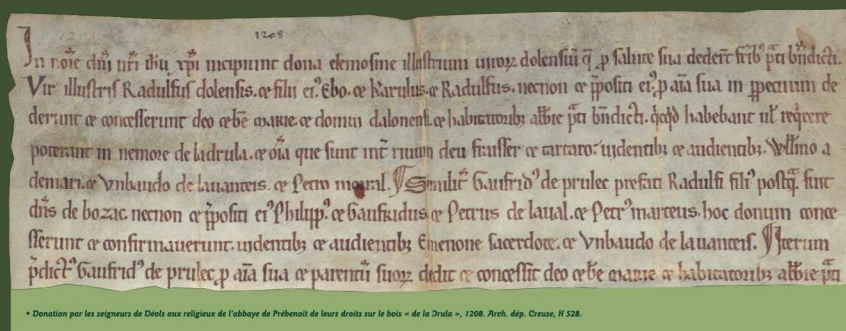 1208
In noı̃e dñi nr̃i ih̃u xp̃i incipiunt dona elemosine illustrium uiroꝝ dolensiũ q̃ ꝓ salute sua dederẽt fr̃ibꝰ p̃ti bñdicti.
Vir illustris Radulfus dolensis. ⁊ filii eiꝰ Ebo. ⁊ Karulus. ⁊ Radulfus. necnon ⁊ p̃positi eiꝰ ꝓ aĩa sua in ꝑpetuum de
derunt ⁊ concesserunt deo ⁊ bẽ marie. ⁊ domui dalonensi. ⁊ habitatoribꝫ abb̃ie p̃ti bñdicti. habebant ul̃ reqꝛere
poterant in nemore de ladrula. ⁊ oĩa que sunt int̃ riuum deu frausser ⁊ tartaro. uidentibꝫ ⁊ audientibꝫ. Will̃mo a
demari. ⁊ Vnbaudo de lauanceis. ⁊ Petro Similit̃ Gaufridꝰ de prulec prefati Radulfi filiꝰ postq̃ fuit
dñs de bozac necnon ⁊ p̃positi eiꝰ Philippꝰ. ⁊ Gaufridus ⁊ Petrus de laual. ⁊ Petrꝰ marteus. hoc donum conce
sserunt ⁊ confirmauerunt. uidentibꝫ ⁊ audientibꝫ Emenone sacerdote. ⁊ Vnbaudo de lauanceis. Iterum
p̃dictꝰ Gaufridꝰ de prulec ꝓ aĩa sua ⁊ parentũ suoꝝ dedit ⁊ concessit deo ⁊ bẽ marie ⁊ habitatoribꝫ abb̃ie p̃ti
• Donation par les seigneurs de Déols aux religieux de l'abbaye de Prébenoît de leurs droits sur le bois « de la Drula », 1208. Arch. dép. Creuse, H 528.